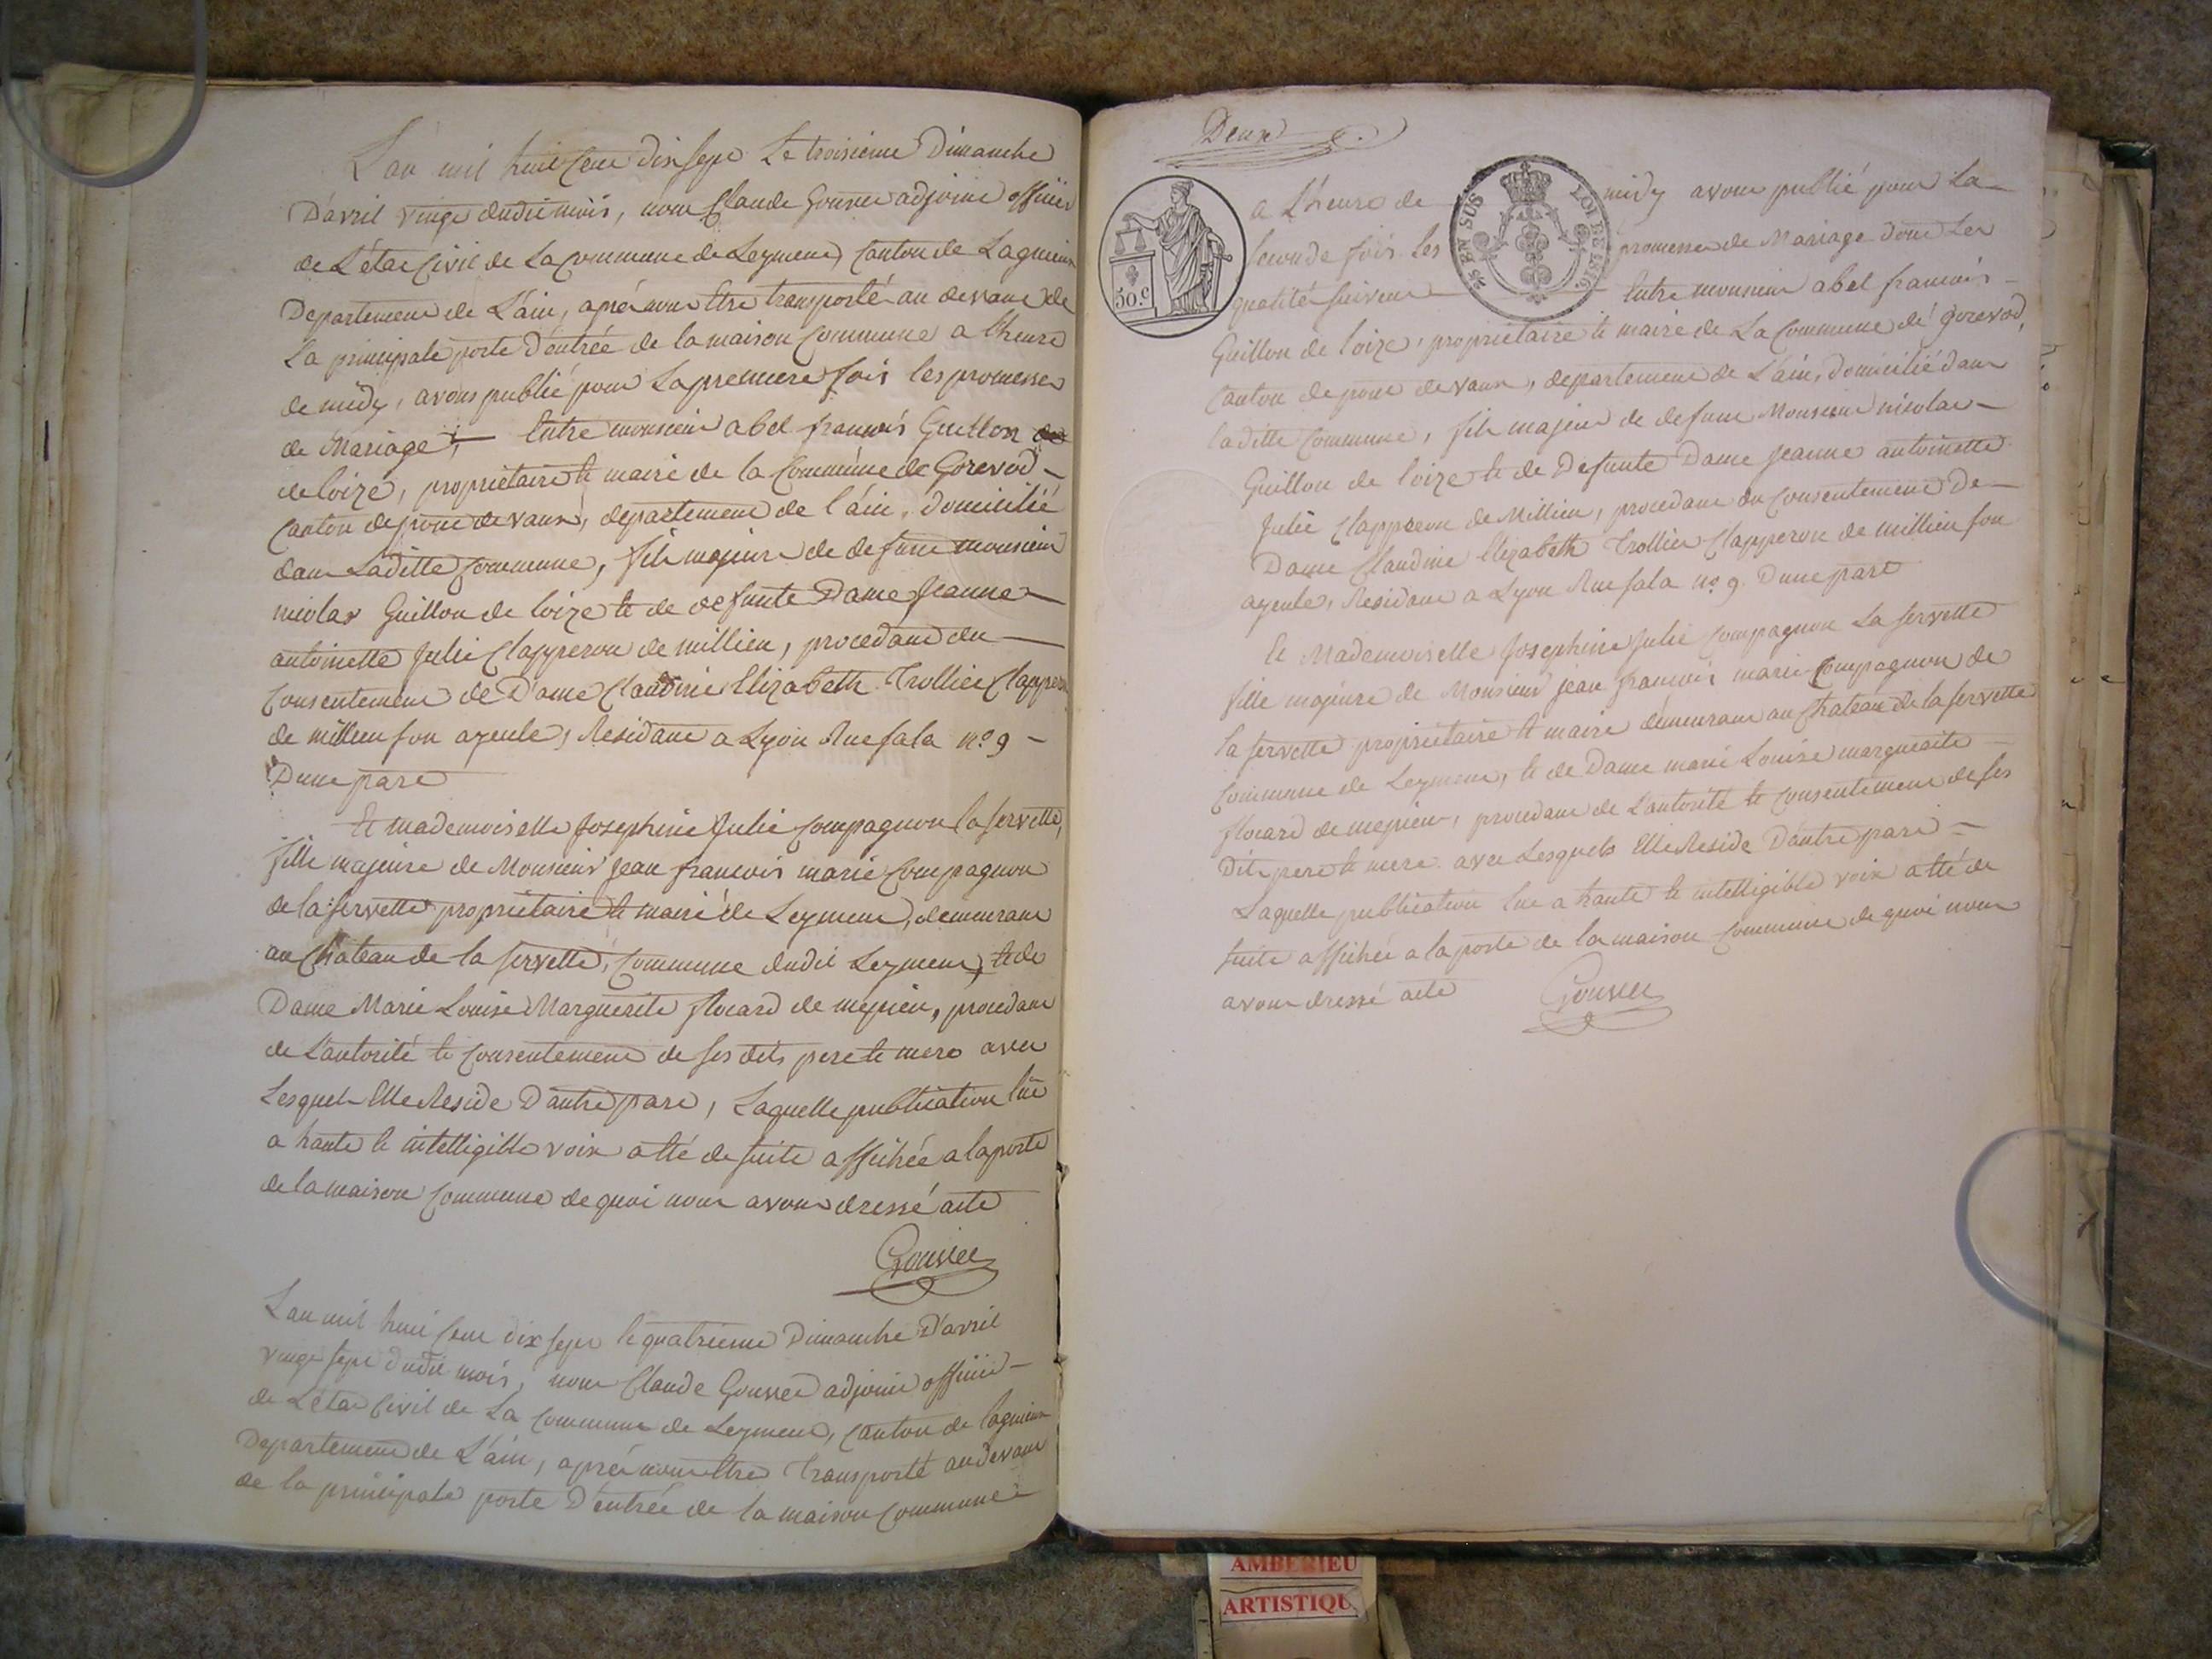 L'an mil huit cent dix sept Le troisieme Dimanche
D'avril vingt dudit mois, nous Claude Gouvée adjoint officier
de L'état Civil de La commune de Leyment, Canton de Lagnieux
Departement de L'ain, aprés nous être transporté au devant de
La principale porte d'entrée de la maison Commune a l'heure
de midy, avons publié pour La premiere fois les promesses
de Mariage, Entre monsieur abel francois Guillon
de loize, propriétaire et maire de la Commune de Gorevod
Canton de pont de vaux, departement de l'ain, domicilié
dans Laditte Commune, fils majeur de defunt monsieur
nicolas Guillon de loize et de defunte Dame Jeanne
antoinette Julie Clapperon de millieu, procedant du
Consentement de Dame Claudine Elizabeth Trollier Clapperon
de millieu son ayeule, Residant a Lyon Rue sala n.o 9
D'une part
Et mademoiselle Josephine Julie Compagnon la servette,
fille majeure de Monsieur Jean francois marie Compagnon
de la servette propriétaire et maire de Leyment, demeurant
au Chateau de la servette, Commune dudit Leyment, et de
Dame Marie Louise Marguerite flocard de mepieu, procedant
de L'autorité et Consentement de ses dits pere et mere avec
Lesquels Elle Reside D'autre part, Laquelle publication lue
a haute et intelligible voix a été de suite affichée a la porte
de la maison Commune de quoi nous avons dressé acte
Gouvée
L'an mil huit cent dix sept le quatrieme Dimanche D'avril
vingt sept dudit mois, nous Claude Gouvée adjoint officier
de L'état Civil de La Commune de Leyment, Canton de lagnieux
Departement de L'ain, aprés nous être Transporté au devant
de la principale porte D'entrée de la maison Commune
Deux
a L'heure de midy avons publié pour La
seconde fois les promesses de Mariage dont Les
qualités suivent Entre monsieur abel francois
Guillon de loize, propriétaire et maire de La Commune de gorevod,
Canton de pont de vaux, departement de L'ain, domicilié dans
laditte Commune, fils majeur de defunt Monsieur nicolas
Guillon de loize et de Defunte Dame Jeanne antoinette
Julie Clapperon de Millieu, procedant du Consentement De
Dame Claudine Elizabeth Trollier Clapperon de millieu son
ayeule, Residant a Lyon Rue sala n.o 9 D'une part
Et Mademoiselle Josephine Julie Compagnon La servette
fille majeure de Monsieur jean francois marie Compagnon de
la servette propriétaire et maire demeurant au Chateau de la servette
Commune de Leyment, et de Dame marie Louise marguerite
flocard de mepieu, procedant de L'autorité et Consentement de ses
Dits pere et mere avec Lesquels Elle Reside D'autre part
Laquelle publication lue a haute et intelligible voix a été de
suite affichée a la porte de la maison Commune de quoi nous
avons dressé acte Gouvée
50.c
EN SUS
LOI DE 1816.
AMBERIEU
ARTISTIQU